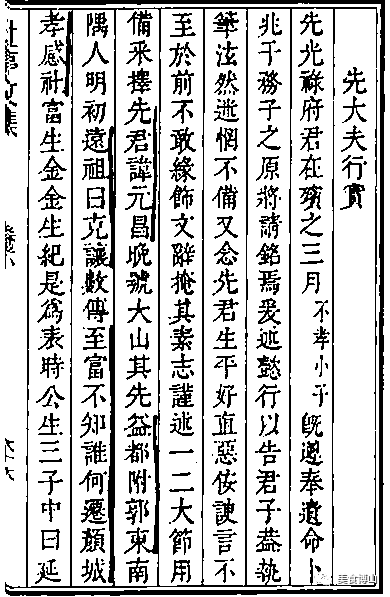 先大夫行實
先光祿府君在殯之三月不孝小子旣遵奉遺命卜
兆于務子之原將請銘焉爰述懿行以告君子葢執
筆泫然迷惘不備又念先君生平好直惡佞諛言不
至於前不敢緣飾文辭掩其素志謹述一二大節用
備采擇先君諱元昌晚號大山其先益都附郭東南
隅人明初遠祖曰克讓數傳至富不知誰何遷顏城
孝感社富生金金生紀是爲表時公生三子中曰延
文集
美食博山